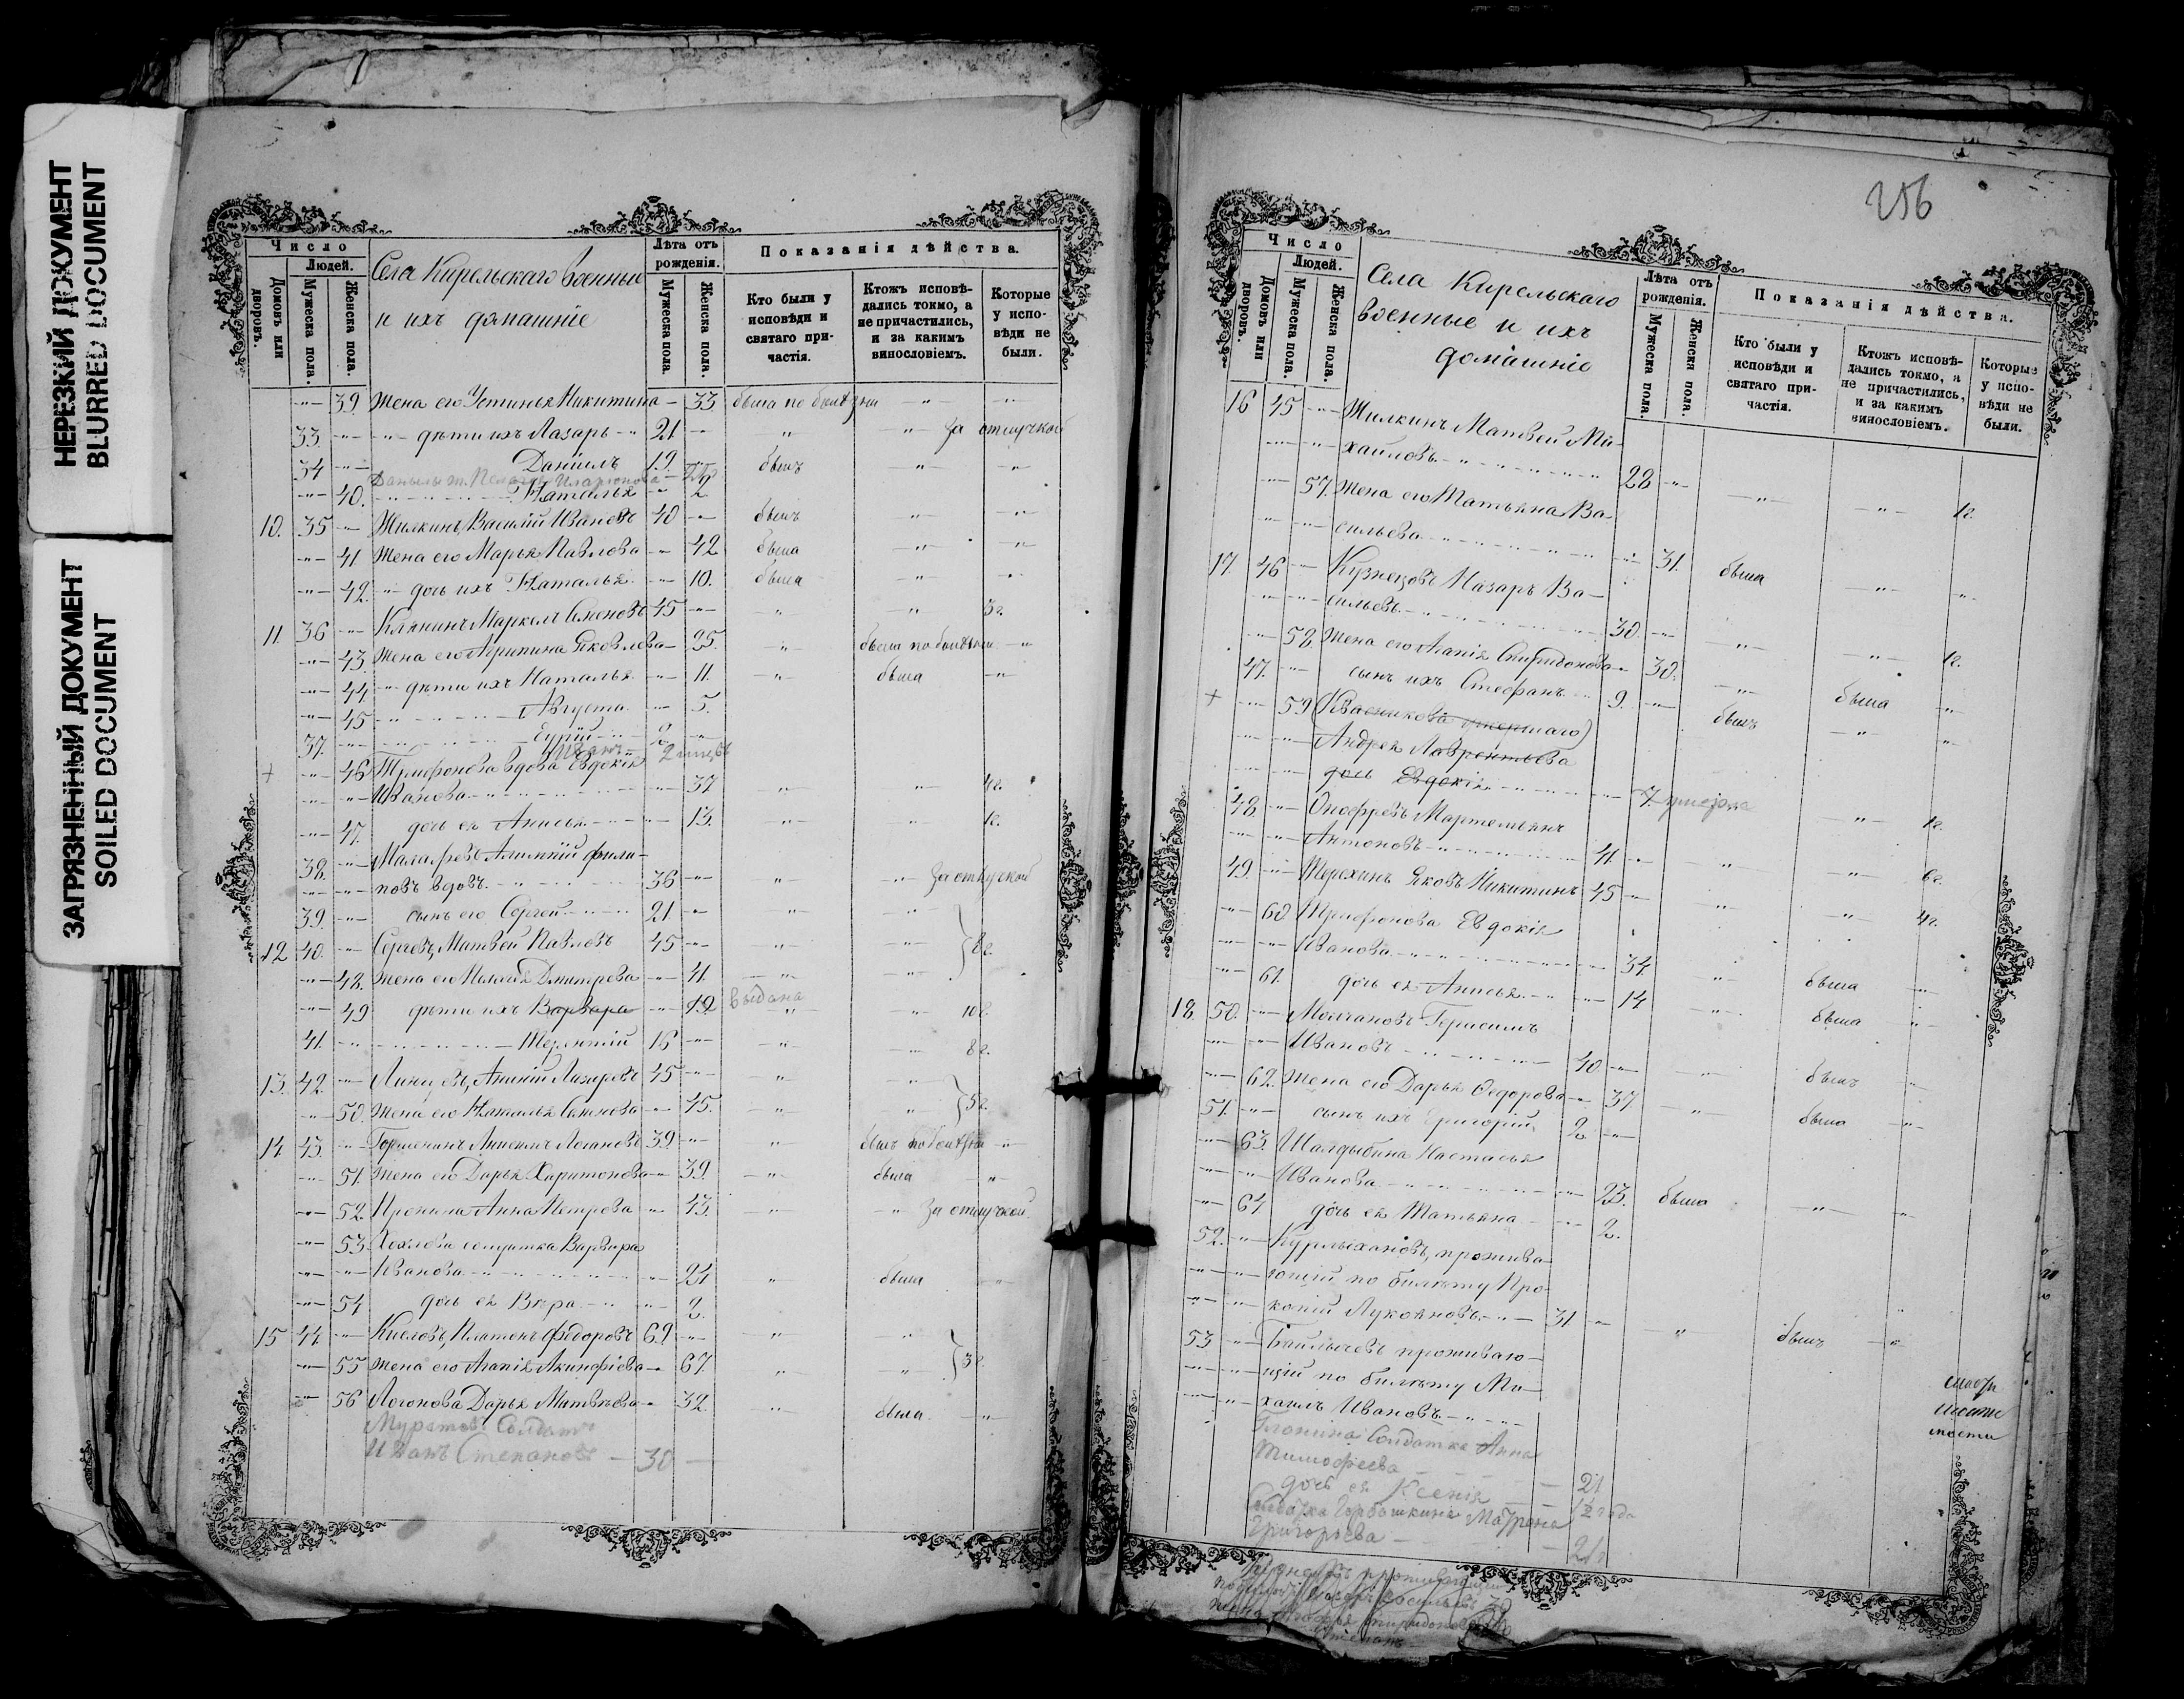 НЕРЕЗКИЙ ДОКУМЕНТ
BLURRED DOCUMENT
ЗАГРЯЗНЕННЫЙ ДОКУМЕНТ
SOILED DOCUMENT
Число
Людей.
Домовъ или дворовъ.
Мужеска пола.
Женска пола.
Села Кирельскаго военные
и ихъ домашніе
Лѣта отъ рожденія.
Мужеска пола.
Женска пола.
Показанія дѣйства.
Кто были у исповѣди и святаго причастія.
Ктожъ исповѣдались токмо, а не причастились, и за какимъ винословіемъ.
Которые у исповѣди не были.
39. Жена его Устинья Никитина 33 была по болѣзни
33. дѣти ихъ Лазарь 21 За отлучкой
34 Даніилъ 19. былъ
40. Наталья 2
10. 35 Жилкинъ, Василій Ивановъ 40 былъ
41 Жена его Марья Павлова 42 была
42. дочь ихъ Наталья 10. была
11 36 Маркелъ Семеновъ 45 3г.
43. Жена его Агрипина Яковлева 25. была по болѣзни
44. дѣти ихъ Наталья 11. была
45 Августа 5.
37.
+ 46 Трифонова вдова Евдокія
Иванова 37 4г.
47. дочь ея Анисья 13. 1г.
38. Малафѣевъ Алимпій Фили-
повъ вдовъ 36 За отлучкой
39. сынъ его Сергей 21
12 40. Сергѣевъ, Матвей Павловъ 45 8г.
48. Жена его Дмитрева 41.
49 дѣти ихъ Варвара 19 выдана 10г.
41. Терентій 16 8г.
13. 42. Ананій Лазаревъ 45
50. Жена его Наталья 45. 5г.
14 43. 39. былъ по болѣзни
51. Жена его Дарья Харитонова 39. была
52. Пронина Анна Петрова 43. За отлучкой
53. Хохлова солдатка Варвара
Иванова 24 была
54 дочь ея Вѣра 2.
15 44 Кисловъ, Платонъ Федоровъ 69
55 Жена его Агапія Акинфіева 67 3г.
56 Логонова Дарья Матвѣева 32. была
Муратовъ Солдатъ
Иванъ Степановъ 30
256
Число
Людей.
Домовъ или дворовъ.
Мужеска пола.
Женска пола.
Села Кирельскаго
военные и ихъ
домашніе
Лѣта отъ рожденія.
Мужеска пола.
Женска пола.
Показанія дѣйства.
Кто были у исповѣди и святаго причастія.
Ктожъ исповѣдались токмо, а не причастились, и за какимъ винословіемъ.
Которые у исповѣди не были.
16 45 Жилкинъ Матвей Ми-
хайловъ 28 1г.
57. Жена его Татьяна Ва-
сильева 31. была
17. 46 Кузнецовъ Назаръ Ва-
сильевъ 30. 1г.
58. Жена его Агапія Спиридонова 30. была
47. сынъ ихъ Стефанъ 9. былъ
+ 59 (Квасникова умершаго)
Андрея Лаврентьева
дочь Евдокія 7 1г.
48. Онофревъ Мартемьянъ
Антоновъ 41. 6г.
49. Терехинъ Яковъ Никитинъ 45 4г.
60 Трифонова Евдокія
Иванова 34 была
61. дочь ея Анисья 14 была
18. 50. Молчановъ Герасимъ
Ивановъ 40 былъ
62. Жена его Дарья Федорова 37 была
51. сынъ ихъ Григорій 2
63. Шалдыбина Настасья
Иванова 23. была
64 дочь ея Татьяна 2.
52. Курлыхановъ, прожива-
ющій по билету Про-
копій Лукояновъ 31. былъ
53 проживаю-
щій по билету Ми-
хаилъ Ивановъ
Солдатка Анна
Тимофеева 21
дочь ея Ксенія 1½ года
Солдатка Матрена
Григорьева 21